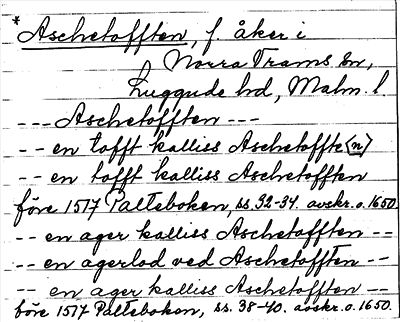 *Aschetofften, f. åker i
Norra Trams sn,
Luggude hd, Malm. l.
--- Aschetofften ---
-- en tofft kalliss Aschetoffte<n>
-- en tofft kalliss Aschetofften
före 1517 Palteboken, ss. 32-34. avskr. o. 1650
-- en ager kalliss Aschetofften --
-- en agerlod ved Aschetofften --
-- en ager kalliss Aschetofften --
före 1517 Paltebohen, ss. 38-40. avskr. o. 1650.